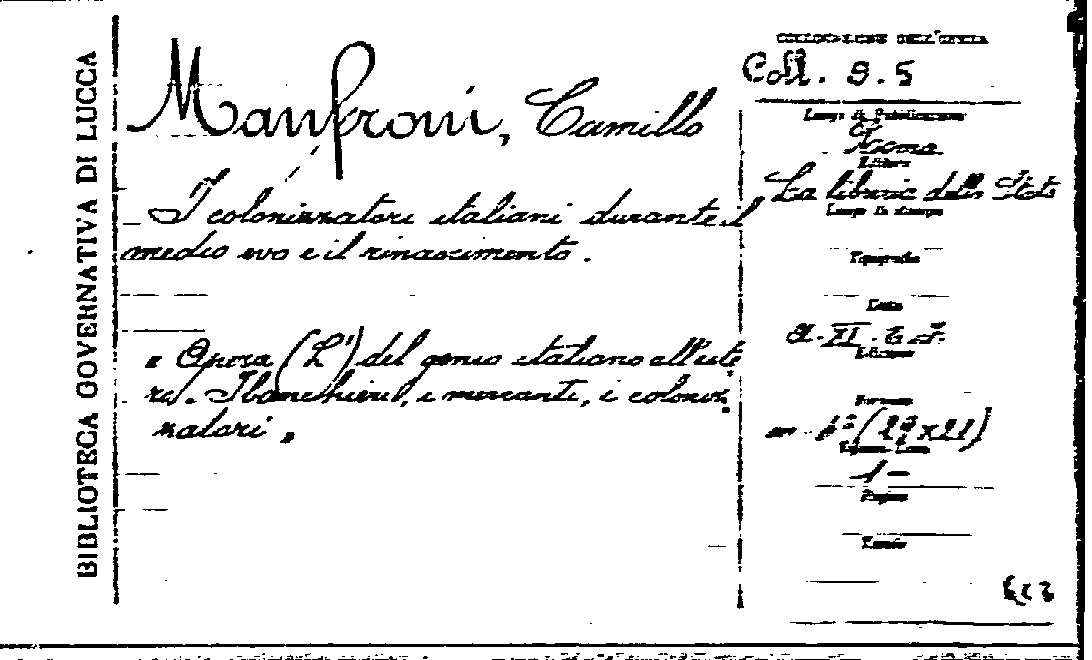 BIBLIOTECA GOVERNATIVA DI LUCCA
Manfroni, Camillo
I colonizzatori italiani durante il
medio evo e il rinascimento.
" Opera (L') del genio italiano all'este
ro. I banchieri, i mercanti, i coloniz
zatori "
COLLOCAZIONE DELL'OPERA
Coll. 9.5
Luogo di Pubblicazione
Roma
Editore
La libreria dello Stato
Luogo di stampa
Tipografia
Data
a. XI. E.F.
Edizione
Formato
in 4° (29x21)
1 -
Pagine